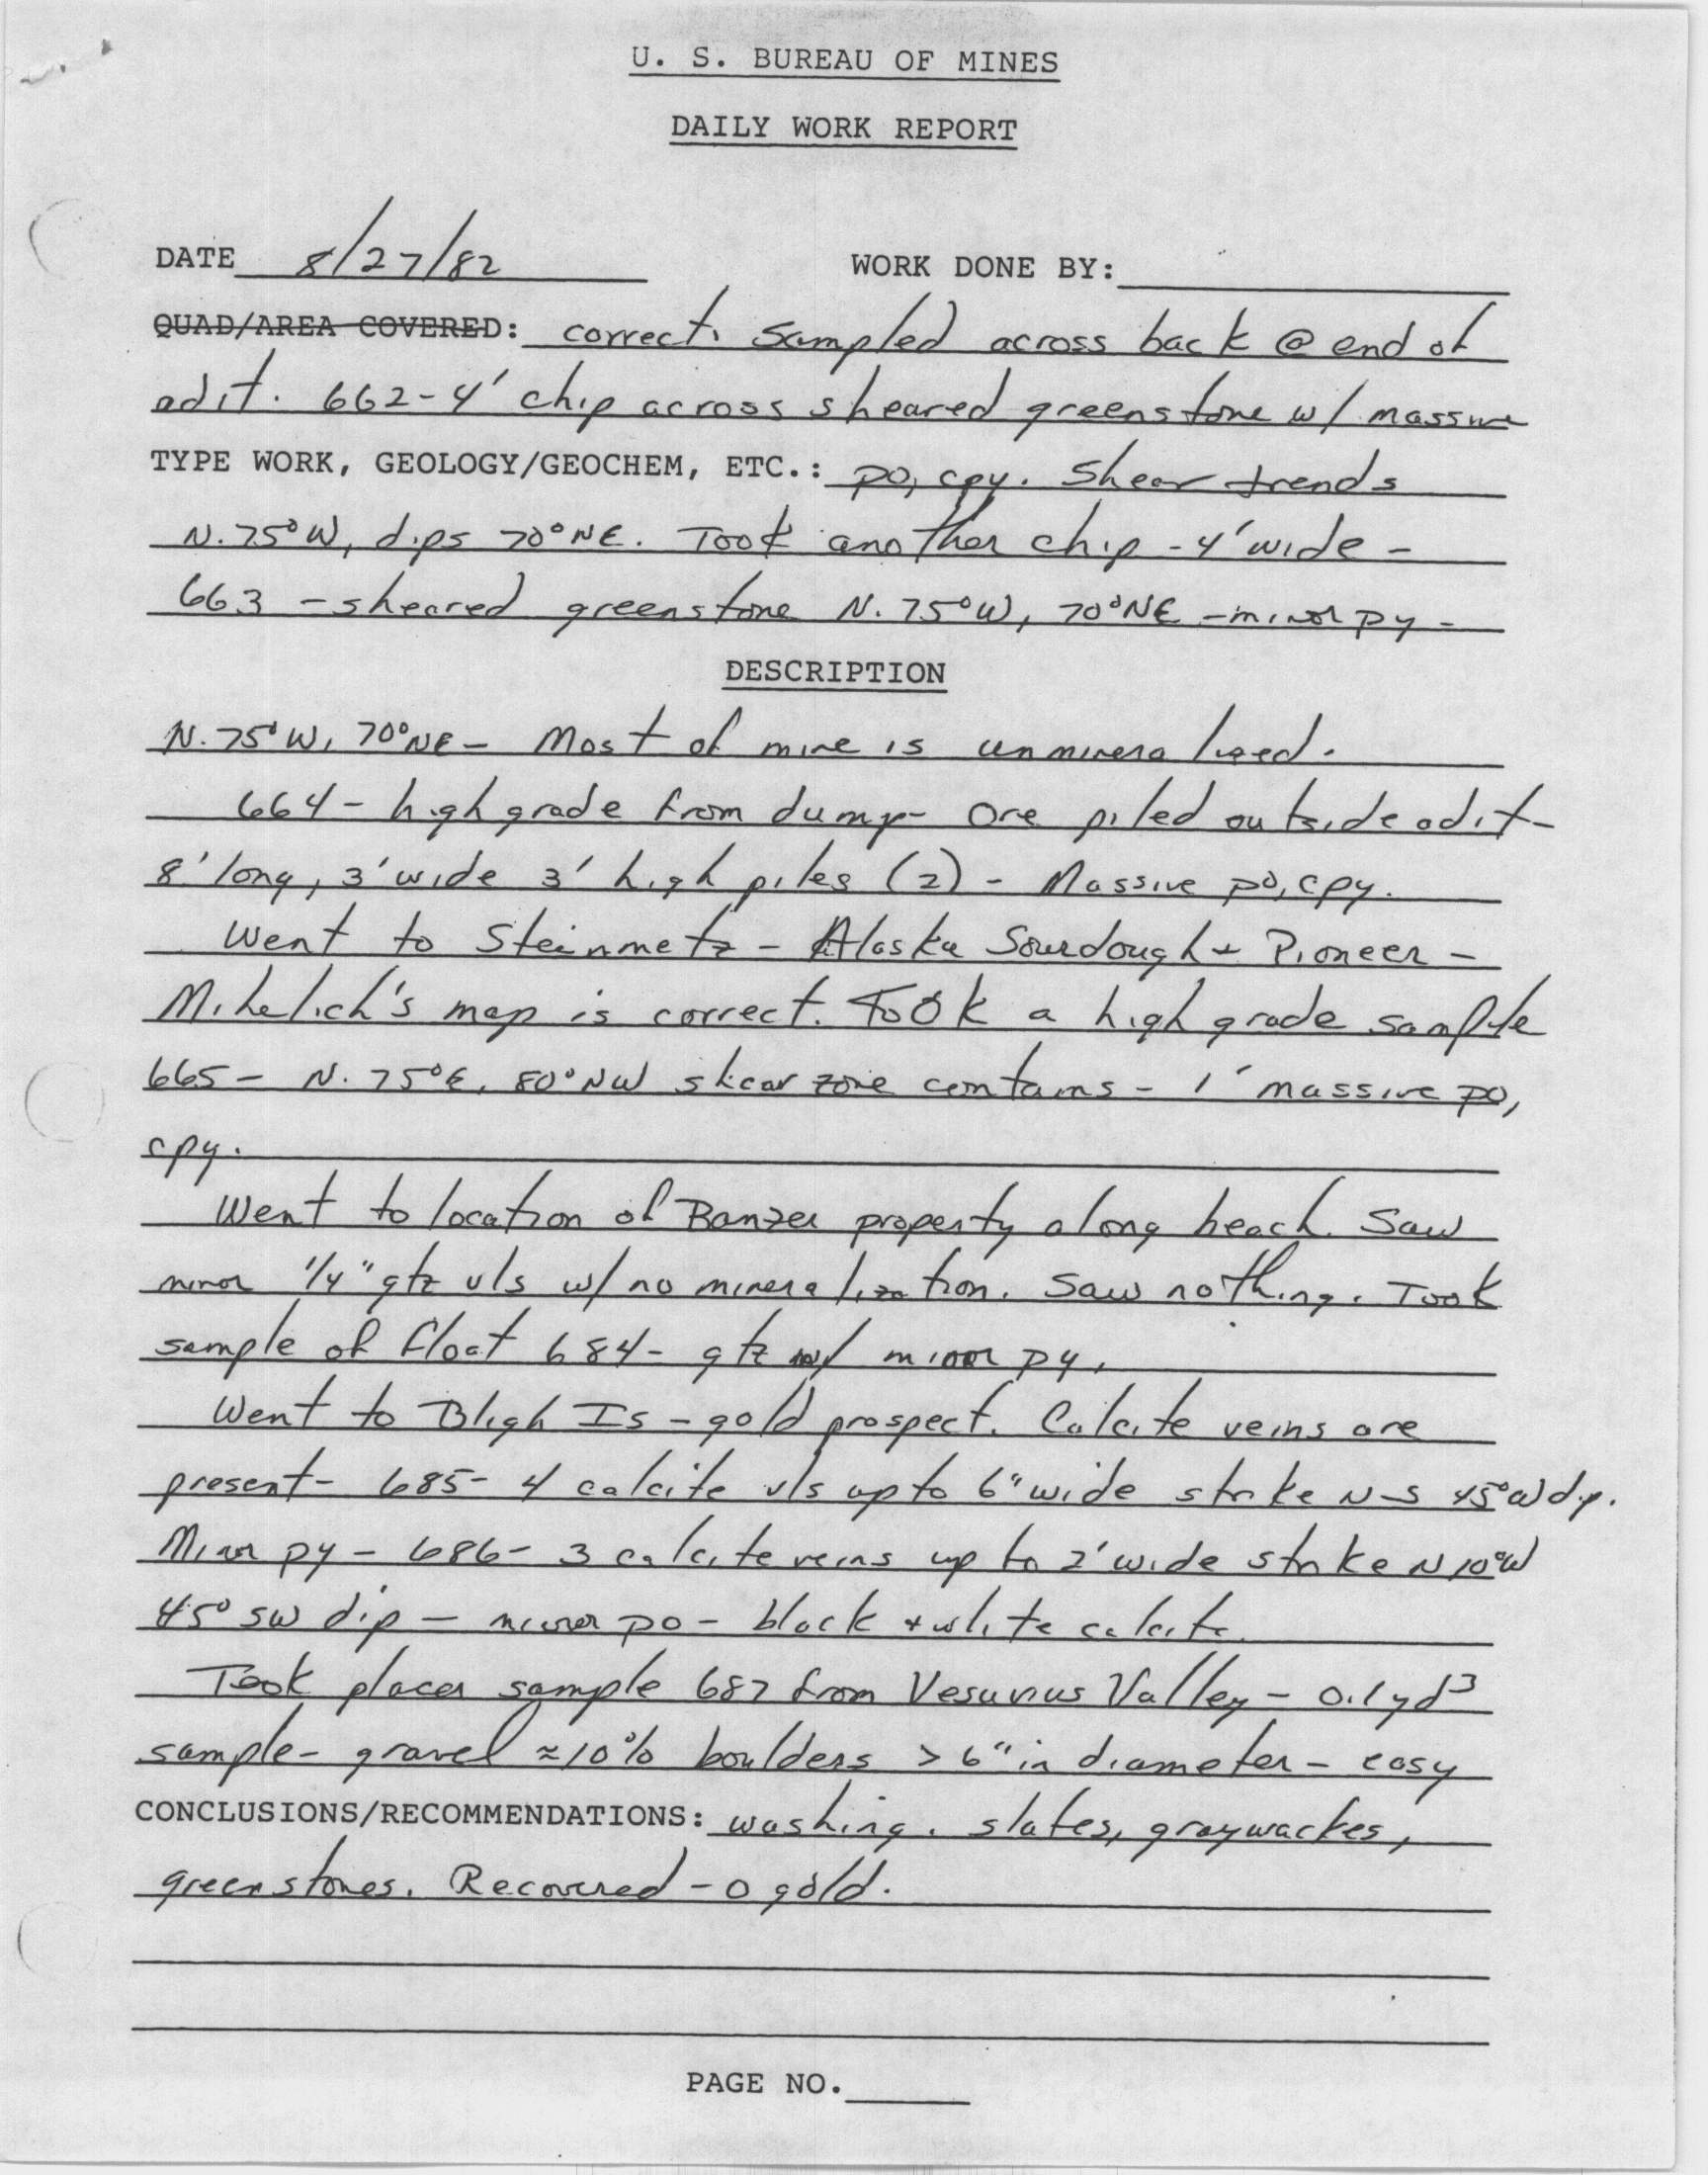 U. S. BUREAU OF MINES
DAILY WORK REPORT
DATE 8/27/82 WORK DONE BY:
QUAD/AREA COVERED: correct. Sampled across back @ end of
adit. 662-4' chip across sheared greenstone w/ massive
TYPE WORK, GEOLOGY/GEOCHEM, ETC.: po, cpy. Shear trends
N. 75° W, dips 70° NE. Took another chip - 4' wide -
663 - sheared greenstone N. 75° W, 70° NE - minor py -
DESCRIPTION
N. 75° W, 70° NE - Most of mine is unmineralized.
664 - high grade from dump - Ore piled outside adit -
8' long, 3' wide 3' high piles (2) - Massive po, cpy.
Went to Steinmetz - Alaska Sourdough + Pioneer -
Mihelich's map is correct. Took a high grade sample
665 - N. 75° E, 80° NW shear zone contains - 1' massive po,
cpy.
Went to location of Banzer property along beach. Saw
minor 1/4" qtz vls w/ no mineralization. Saw nothing. Took
sample of float 684 - qtz w/ minor py.
Went to Bligh Is - gold prospect. Calcite veins are
present - 685 - 4 calcite vls up to 6" wide strike N-S 45° W dip.
Minor py - 686 - 3 calcite veins up to 2' wide strike N 10° W
45° SW dip - minor po - black + white calcite.
Took placer sample 687 from Vesuvius Valley - 0.1 yd³
sample - gravel ≈ 10% boulders > 6" in diameter - easy
CONCLUSIONS/RECOMMENDATIONS: washing. slates, graywackes,
greenstones. Recovered - 0 gold.
PAGE NO.